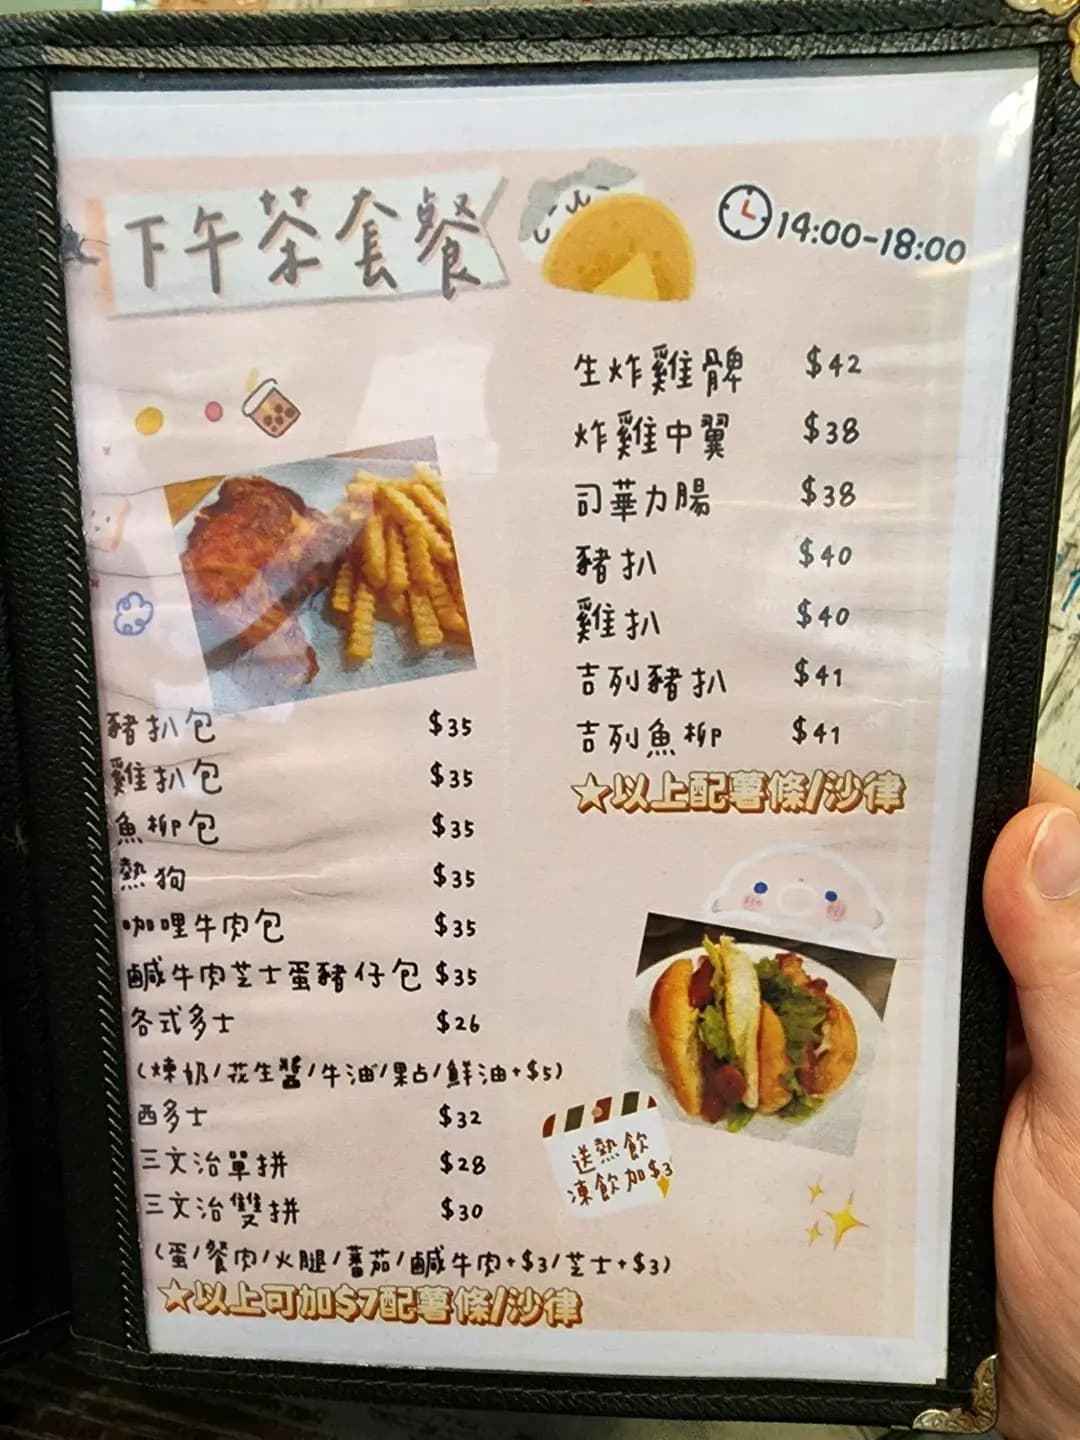 下午茶套餐
14:00-18:00
生炸雞髀 $42
炸雞中翼 $38
司華力腸 $38
豬扒 $40
雞扒 $40
吉列豬扒 $41
吉列魚柳 $41
★以上配薯條/沙律
豬扒包 $35
雞扒包 $35
魚柳包 $35
熱狗 $35
咖哩牛肉包 $35
鹹牛肉芝士蛋豬仔包 $35
各式多士 $26
(煉奶/花生醬/牛油/果占/鮮油+$5)
西多士 $32
三文治單拼 $28
三文治雙拼 $30
(蛋/餐肉/火腿/蕃茄/鹹牛肉+$3/芝士+$3)
★以上可加$7配薯條/沙律
送熱飲
凍飲加$3